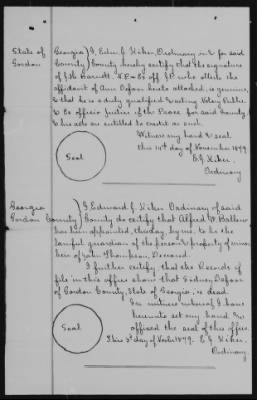 State of Georgia) I, Edw. J. Kiker, Ordinary in & for said
Gordon County) County hereby certify that the signature
of J. M. Barnett, N.P. & Ex off. J.P. who attests the
affidavit of Ann Defoor hereto attached, is genuine,
& that he is a duly qualified & acting Notary Public
& Ex officio Justice of the Peace for said County, &
his acts are entitled to credit as such.
Witness my hand & seal
this 14th day of November 1879.
E. J. Kiker,
Ordinary
Seal
Georgia ) I Edward J. Kiker Ordinary of said
Gordon County) County do certify that Alfred W. Ballew
has been appointed, this day, by me, to be the
lawful guardian of the person & property of minor
heirs of John Thompson, Deceased.
I further certify that the Records of
file in this office show that Sidney Defoor
of Gordon County, State of Georgia, is dead.
In witness whereof I have
hereunto set my hand &
affixed the seal of this office.
Seal
This 3d day of Novbr 1879. E. J. Kiker,
Ordinary